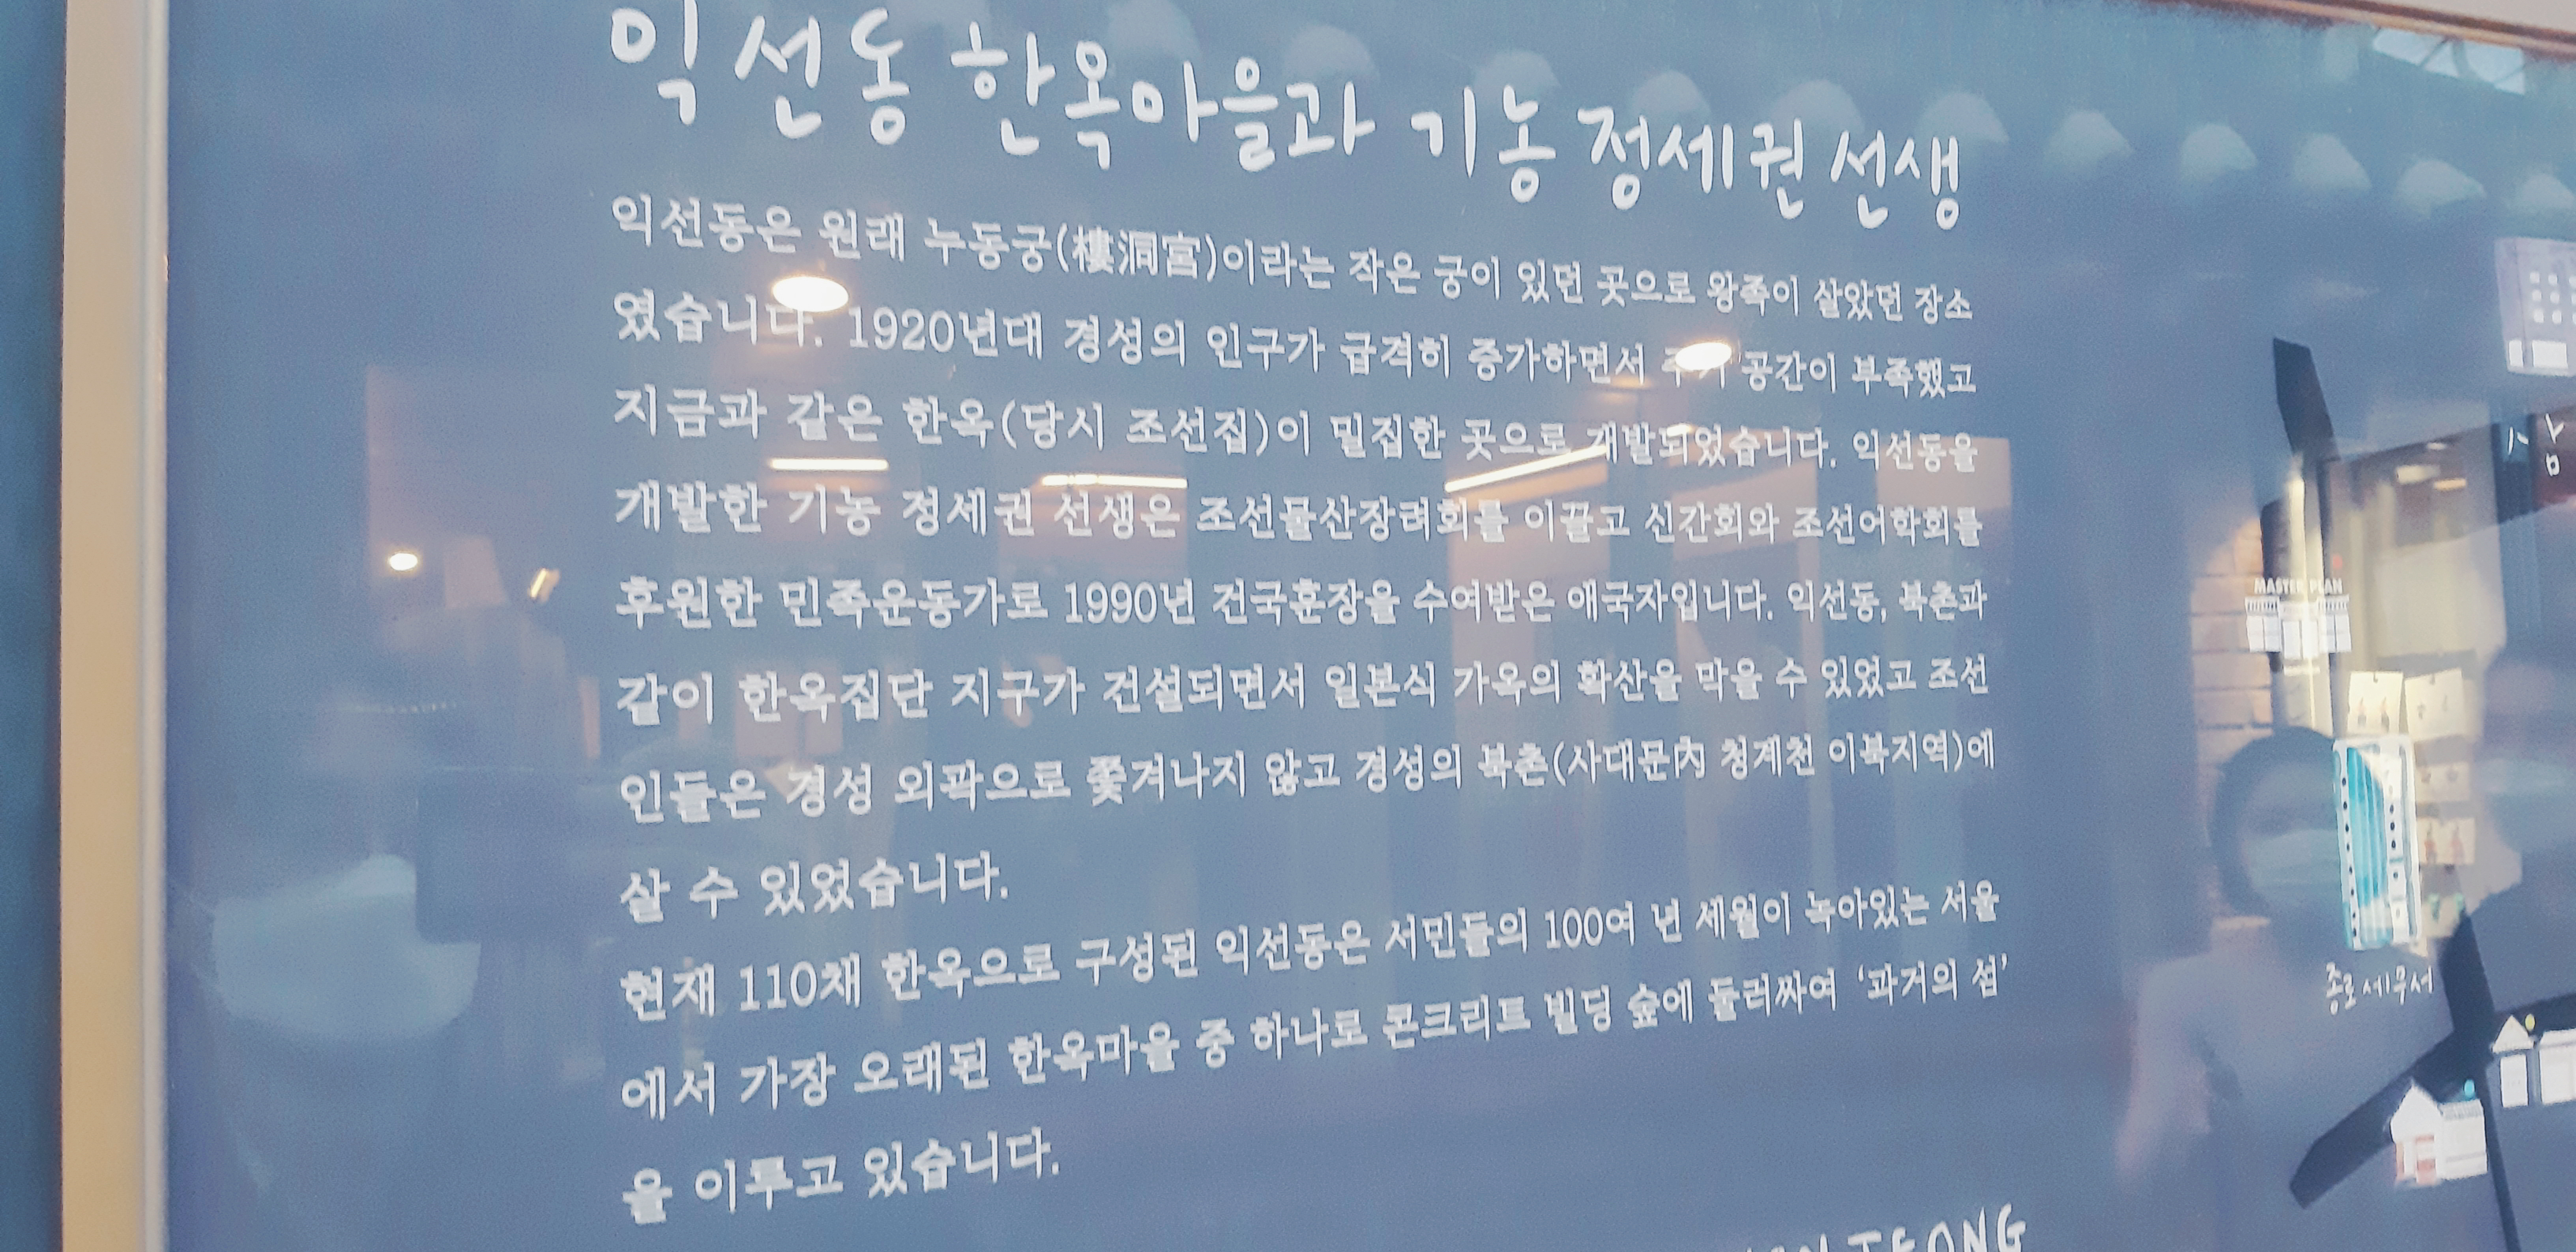 익선동 한옥마을과 기농 정세권 선생
익선동은 원래 누동궁(樓洞宮)이라는 작은 궁이 있던 곳으로 왕족이 살았던 장소
였습니다. 1920년대 경성의 인구가 급격히 증가하면서 공간이 부족했고
지금과 같은 한옥(당시 조선집)이 밀집한 곳으로 개발되었습니다. 익선동을
개발한 기농 정세권 선생은 조선물산장려회를 이끌고 신간회와 조선어학회를
후원한 민족운동가로 1990년 건국훈장을 수여받은 애국자입니다. 익선동, 북촌과
같이 한옥집단 지구가 건설되면서 일본식 가옥의 확산을 막을 수 있었고 조선
인들은 경성 외곽으로 쫓겨나지 않고 경성의 북촌(사대문內 청계천 이북지역)에
살 수 있었습니다.
현재 110채 한옥으로 구성된 익선동은 서민들의 100여 년 세월이 녹아있는 서울
에서 가장 오래된 한옥마을 중 하나로 콘크리트 빌딩 숲에 둘러싸여 ‘과거의 섬’
을 이루고 있습니다.
MASTER PLAN
종로세무서